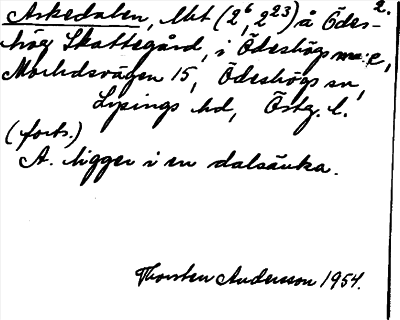 2.
Askedalen, lht (2⁶, 2²³) å Ödes-
hög Skattegård, i Ödeshögs
15, Ödeshögs sn,
Lysings hd, Östg. l.
(forts.)
A. ligger i en dalsänka.
Thorsten Andersson 1954.